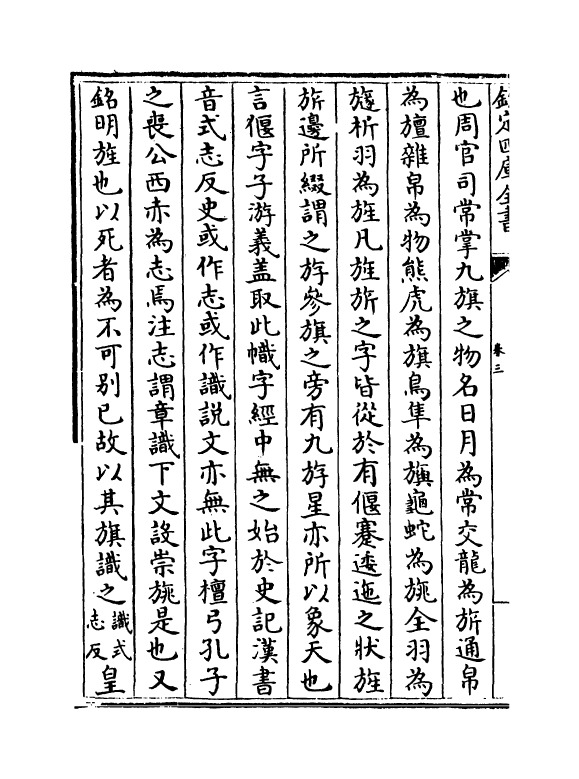 欽定四庫全書
卷三
也周官司常掌九旗之物名日月為常交龍為旂通帛
為旜雜帛為物熊虎為旗鳥隼為旟龜蛇為旐全羽為
旞析羽為旌凡旌旂之字皆從㫃有偃蹇逶迤之狀旌
旂邊所綴謂之斿參旗之旁有九斿星亦所以象天也
言偃字子游義盖取此幟字經中無之始於史記漢書
音式志反史或作志或作識説文亦無此字檀弓孔子
之喪公西赤為志焉注志謂章識下文設崇旐是也又
銘明旌也以死者為不可别已故以其旗識之識式志反皇